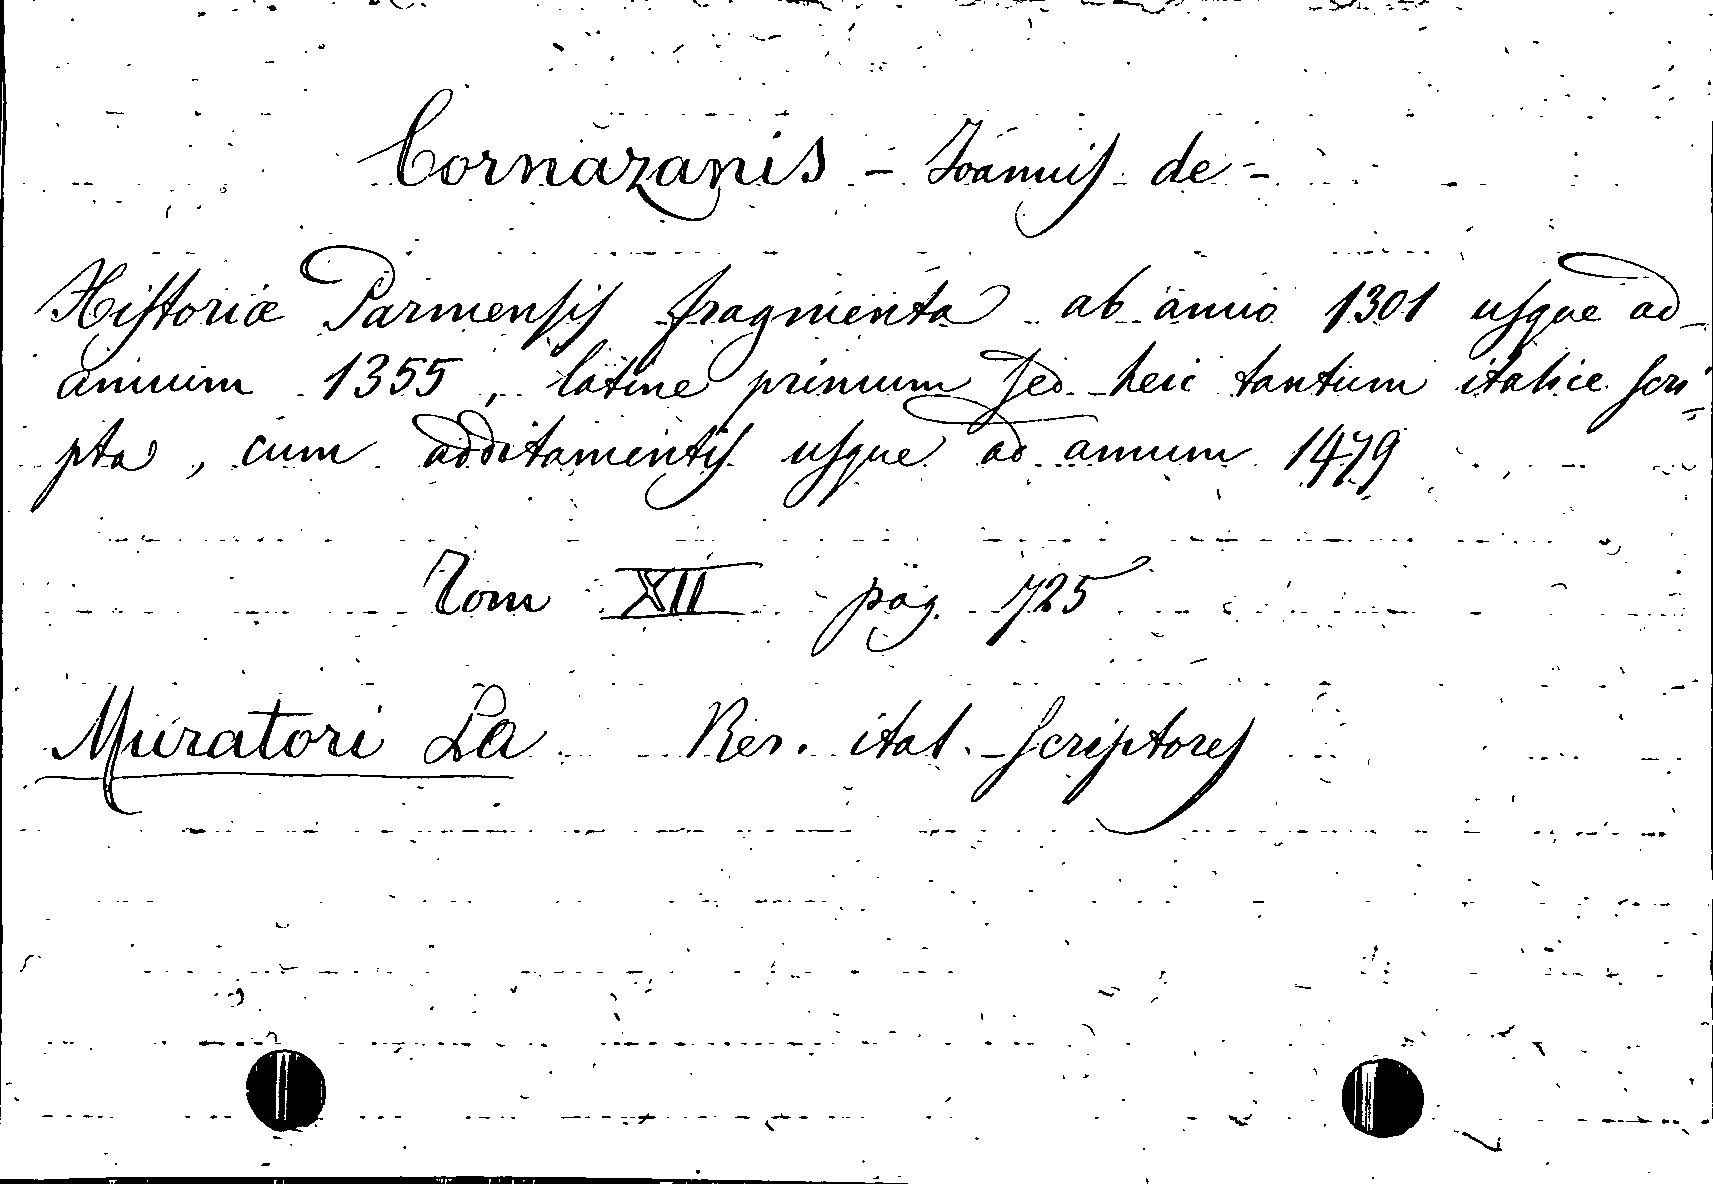 Cornazanis - Ioannis de -
Historiæ Parmensis fragmenta ab anno 1301 usque ad
annum 1355, latine primum sed heic tantum italice scri=
pta, cum additamentis usque ad annum 1479
Tom XII pag. 725
Muratori La Rer. ital. scriptores